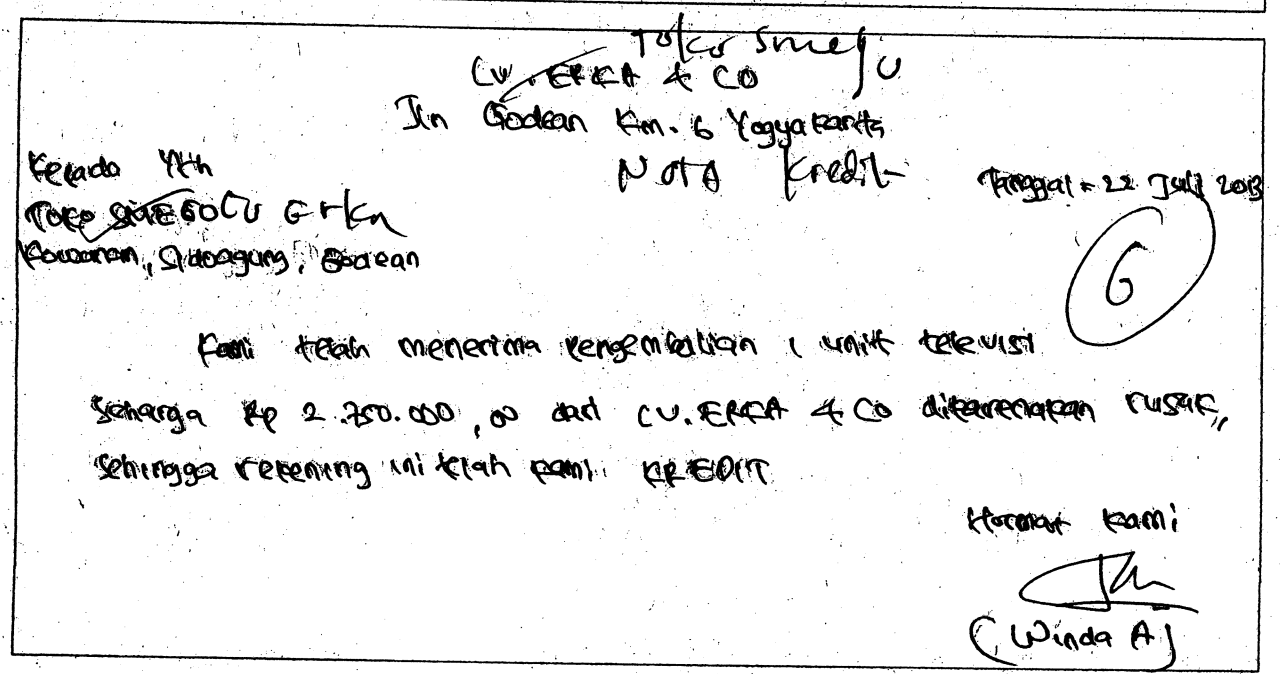 Toko Smegu
CV. ERKA & CO
Jln Godean Km. 6 Yogyakarta
Kepada Yth
NOTA Kredit
Tanggal = 22 Juli 2013
TOKO SMEGO CV Erka
Kowanan, Sidoagung, Godean
6
Kami telah menerima pengembalian 1 unit televisi
Seharga Rp 2.750.000,00 dari CV. ERKA & CO dikarenakan rusak,
Sehingga rekening ini telah kami KREDIT
Hormat kami
(Winda A)